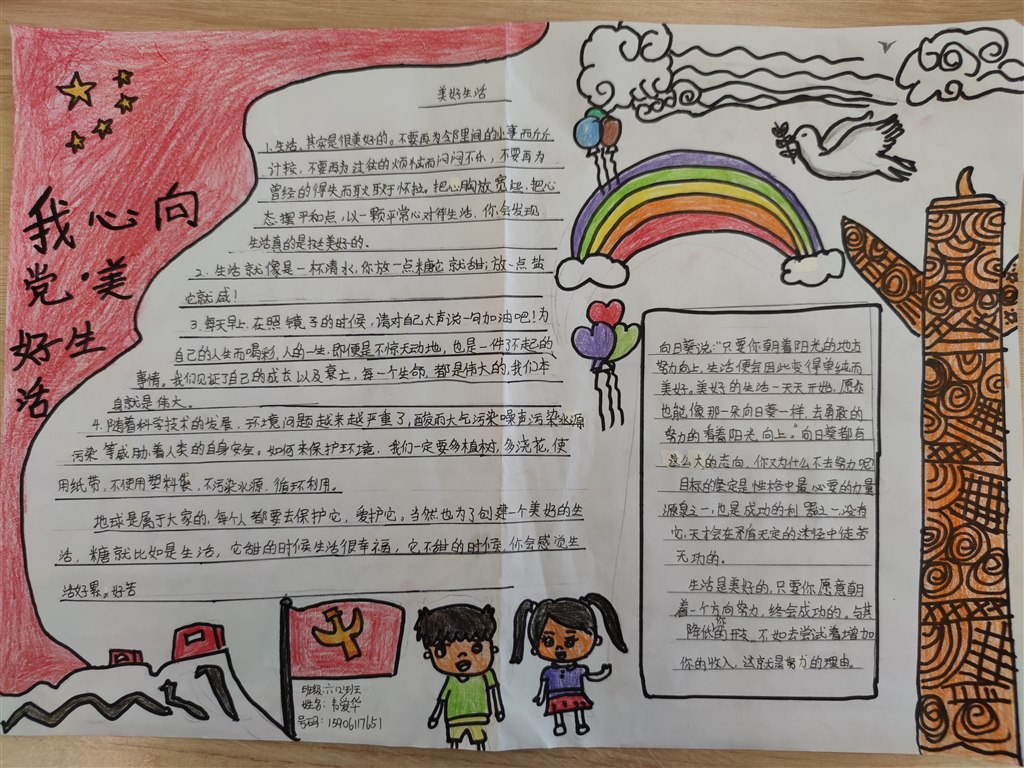 我心向
党·美
好生
活
美好生活
1.生活,其实是很美好的。不要再为邻里间的小事而斤斤
计较,不要再为过往的烦忧而闷闷不乐,不要再为
曾经的得失而耿耿于怀拉。把心胸放宽些,把心
态摆平和点,以一颗平常心对待生活,你会发现
生活真的是挺美好的。
2.生活就像是一杯清水,你放一点糖它就甜;放一点盐
它就咸!
3.每天早上,在照镜子的时候,请对自己大声说一句加油吧!为
自己的人生而喝彩,人的一生,即便是不惊天动地,也是一件了不起的
事情。我们见证了自己的成长以及衰亡,每一个生命,都是伟大的,我们本
身就是伟大。
4.随着科学技术的发展,环境问题越来越严重了,酸雨大气污染噪声污染水源
污染等威胁着人类的自身安全。如何来保护环境,我们一定要多植树,多浇花,使
用纸带,不使用塑料袋,不污染水源,循环利用。
地球是属于大家的,每个人都要去保护它,爱护它。当然也为了创建一个美好的生
活,糖就比如是生活,它甜的时候生活很幸福,它不甜的时候,你会感觉生
活好累。好苦
向日葵说:“只要你朝着阳光的地方
努力向上,生活便会因此变得单纯而
美好。美好的生活一天天开始,愿你
也能像那一朵向日葵一样,去勇敢的
努力的“看着阳光,向上。”向日葵都有
这么大的志向,你又为什么不去努力呢!
目标的坚定是性格中最必要的力量
源泉之一,也是成功的利器之一没有
它,天才会在矛盾无定的迷径中徒劳
无功的。
生活是美好的,只要你愿意朝
着一个方向努力,终会成功的。与其
降低你的开支,不如去尝试着增加
你的收入,这就是努力的理由。
班级:六(2)班
姓名:韦爱华
号码:15906117651